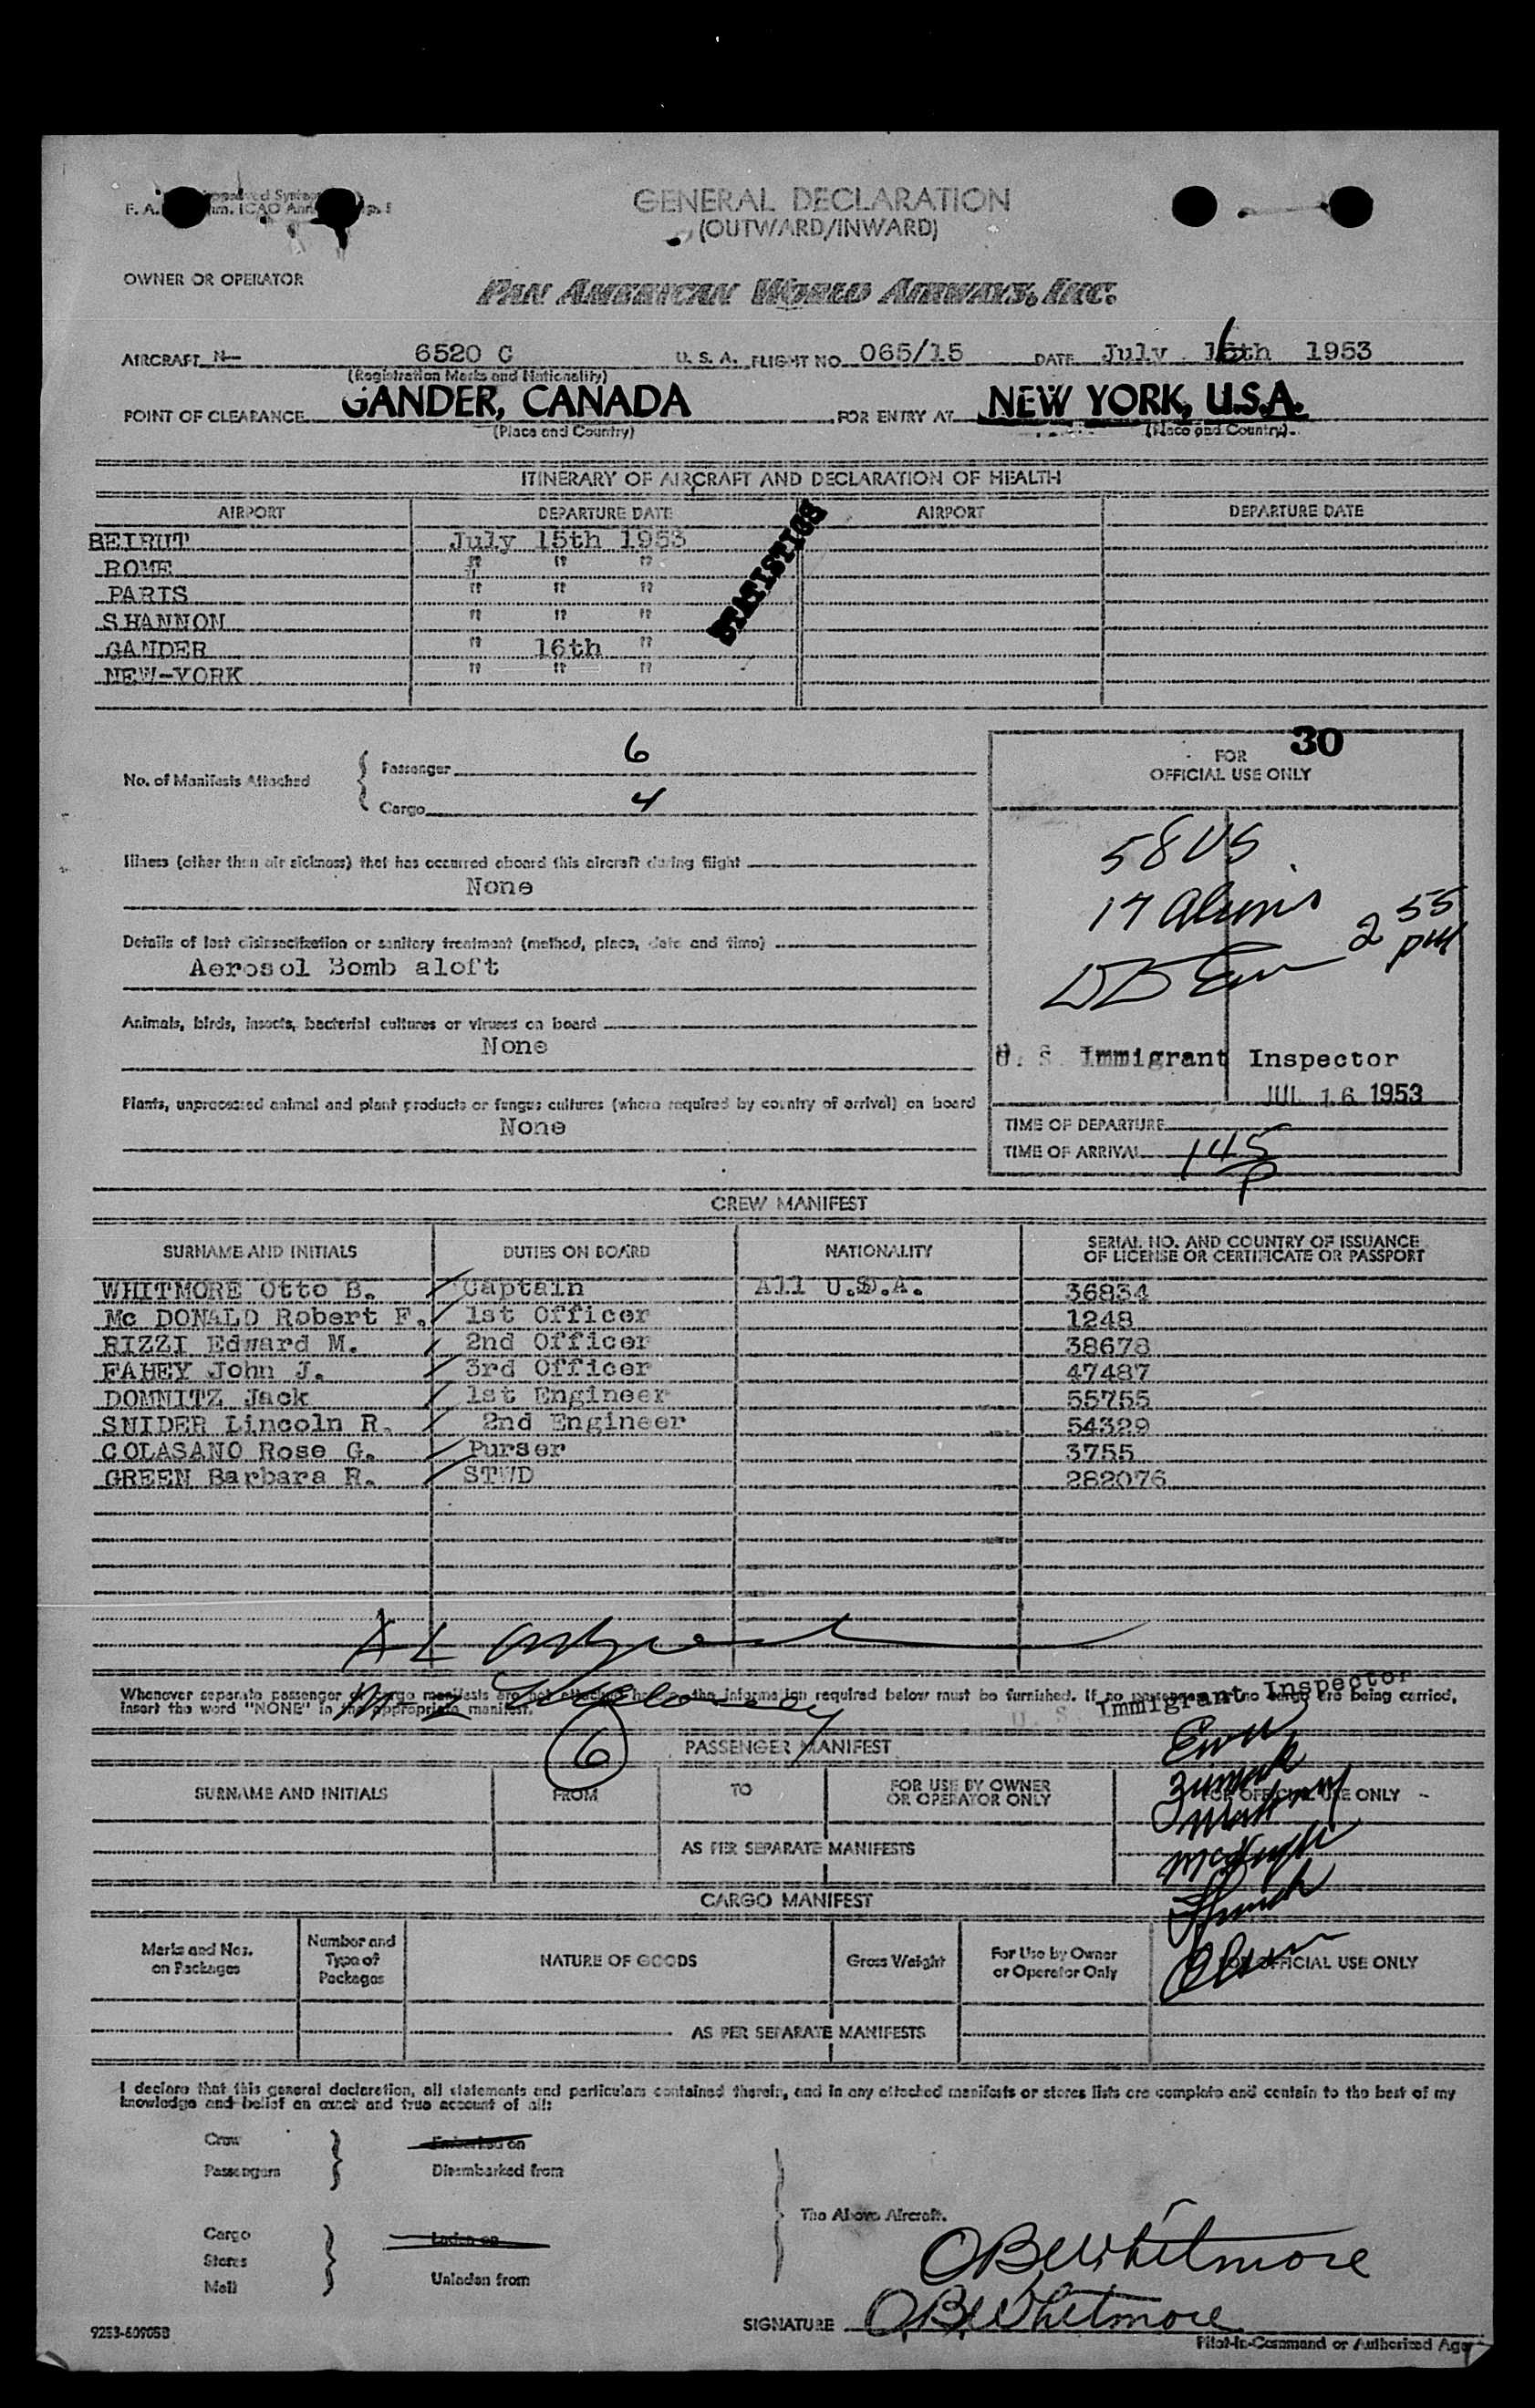 GENERAL DECLARATION
(OUTWARD/INWARD)
OWNER OR OPERATOR
PAN AMERICAN WORLD AIRWAYS, INC.
AIRCRAFT N- 6520 C U. S. A. FLIGHT NO. 065/15 DATE July 16th 1953
(Registration Marks and Nationality)
POINT OF CLEARANCE GANDER, CANADA FOR ENTRY AT NEW YORK, U.S.A.
(Place and Country) (Place and Country)
ITINERARY OF AIRCRAFT AND DECLARATION OF HEALTH
AIRPORT DEPARTURE DATE AIRPORT DEPARTURE DATE
STATISTICS
BEIRUT July 15th 1953
ROME " " "
PARIS " " "
SHANNON " " "
GANDER " 16th "
NEW-YORK " " "
30
FOR
OFFICIAL USE ONLY
No. of Manifests Attached
Passenger 6
Cargo 4
58 US
17 aliens
2 55 pm
Illness (other than air sickness) that has occurred aboard this aircraft during flight
None
Details of last disinsectization or sanitary treatment (method, place, date and time)
Aerosol Bomb aloft
Animals, birds, insects, bacterial cultures or viruses on board
None
U. S. Immigrant Inspector
JUL 16 1953
Plants, unprocessed animal and plant products or fungus cultures (where required by country of arrival) on board
None
TIME OF DEPARTURE
TIME OF ARRIVAL 145 P
CREW MANIFEST
SURNAME AND INITIALS DUTIES ON BOARD NATIONALITY SERIAL NO. AND COUNTRY OF ISSUANCE
OF LICENSE OR CERTIFICATE OR PASSPORT
WHITMORE Otto B. Captain All U.S.A. 36834
Mc DONALD Robert F. 1st Officer 1248
RIZZI Edward M. 2nd Officer 38678
FAHEY John J. 3rd Officer 47487
DOMNITZ Jack 1st Engineer 55755
SNIDER Lincoln R. 2nd Engineer 54329
COLASANO Rose G. Purser 3755
GREEN Barbara R. STWD 282076
Whenever separate passenger or cargo manifests are not attached hereto, the information required below must be furnished. If no passengers or no cargo are being carried,
insert the word "NONE" in the appropriate manifest.
U. S. Immigrant Inspector
6
PASSENGER MANIFEST
SURNAME AND INITIALS FROM TO FOR USE BY OWNER
OR OPERATOR ONLY FOR OFFICIAL USE ONLY
AS PER SEPARATE MANIFESTS
CARGO MANIFEST
Marks and Nos.
on Packages
Number and
Type of
Packages
NATURE OF GOODS
Gross Weight
For Use by Owner
or Operator Only
FOR OFFICIAL USE ONLY
AS PER SEPARATE MANIFESTS
I declare that this general declaration, all statements and particulars contained therein, and in any attached manifests or stores lists are complete and contain to the best of my
knowledge and belief an exact and true account of all:
Crew
Passengers
Embarked on
Disembarked from
The Above Aircraft.
Cargo
Stores
Mail
Laden on
Unladen from
OBWhitmore
SIGNATURE OBWhitmore
Pilot-in-Command or Authorized Age